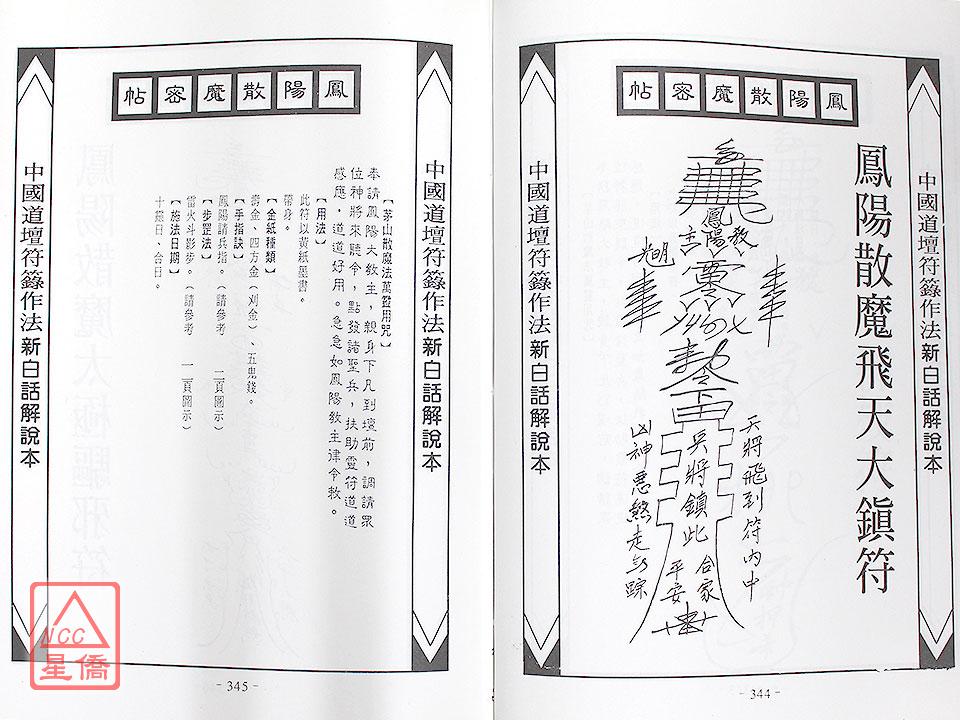 中國道壇符籙作法新白話解說本
鳳陽散魔密帖
鳳陽散魔飛天大鎮符
鳳陽教主
光明
天將飛到符內中
兵將鎮此
合家平安
凶神惡煞走無踪
中國道壇符籙作法新白話解說本
- 344 -
中國道壇符籙作法新白話解說本
鳳陽散魔密帖
【茅山散魔法萬靈用咒】
奉請鳳陽大教主，親身下凡到壇前，調請眾
位神將來聽令，點發諸聖兵，扶助靈符道道
感應，道道好用。急急如鳳陽教主律令敕。
【用法】
此符以黃紙墨書。
帶身。
【金紙種類】
壽金、四方金（刈金）、五鬼錢。
【手指訣】
鳳陽請兵指。（請參考 二頁圖示）
【步罡法】
雷火斗影步。（請參考 一一頁圖示）
【施法日期】
十靈日、合日。
中國道壇符籙作法新白話解說本
- 345 -
NCC
星僑